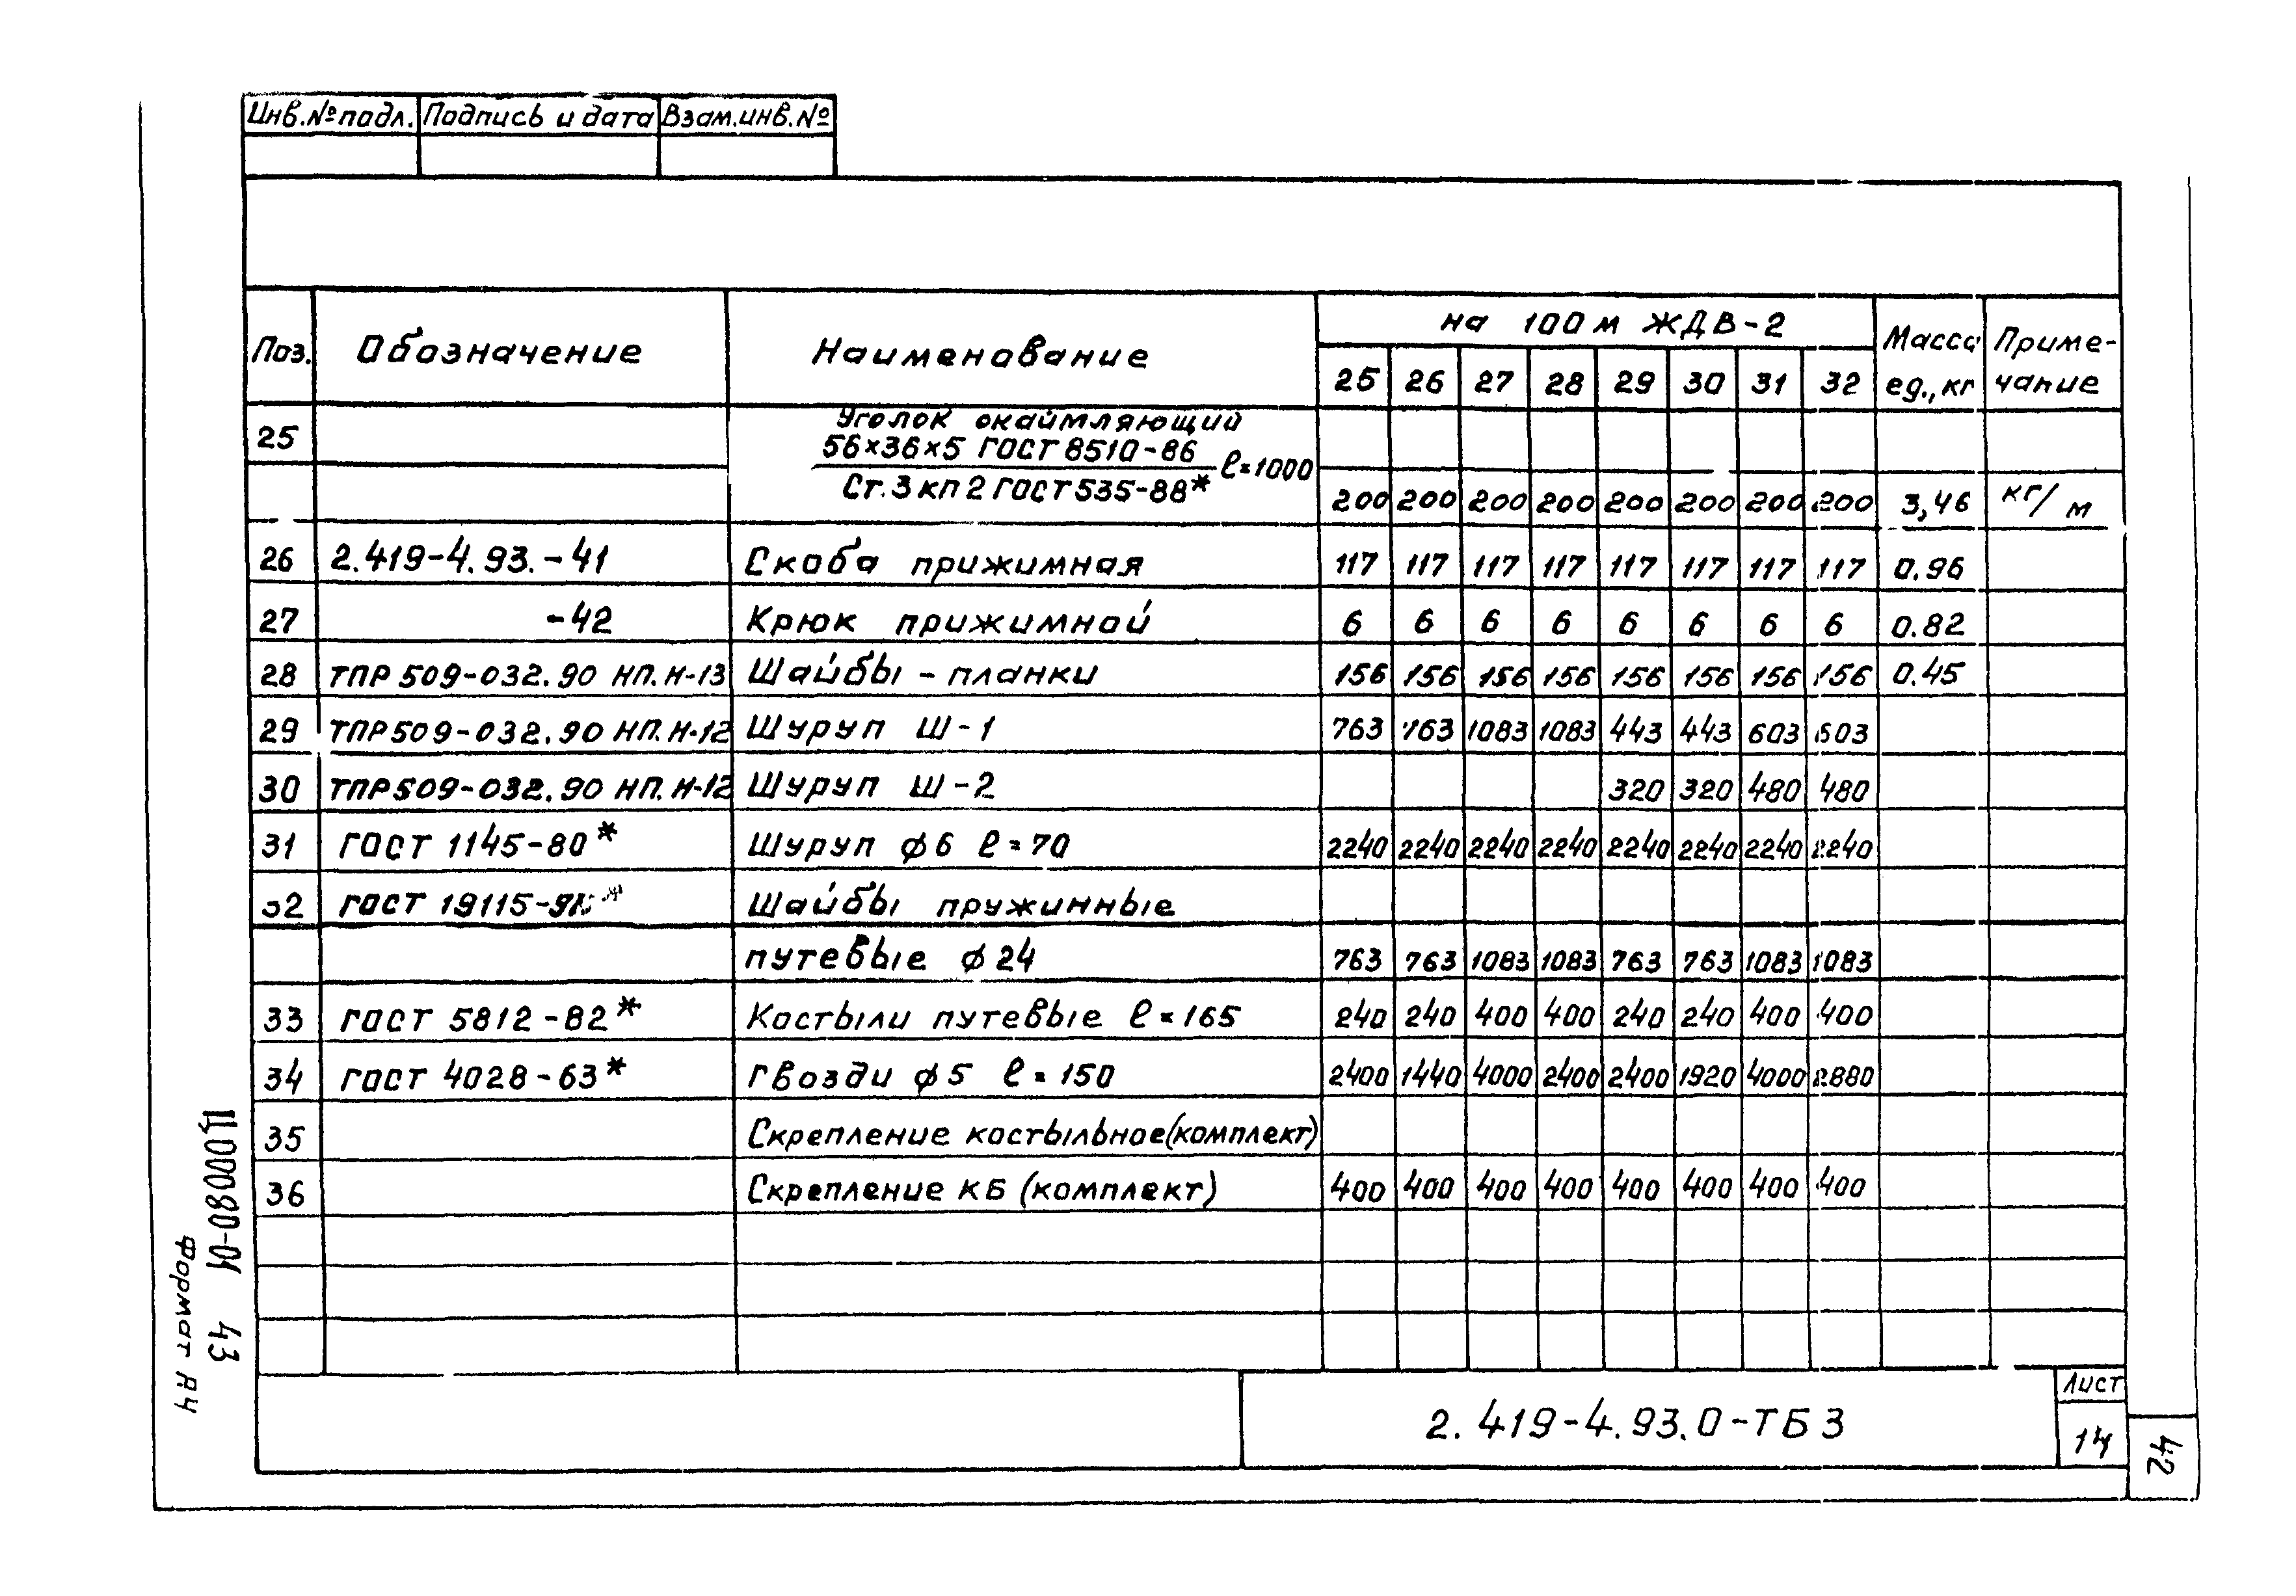 Инв.№подл. Подпись и дата Взам.инв.№
Поз. Обозначение Наименование на 100м ЖДВ-2 Масса ед., кг Приме-чание
25 26 27 28 29 30 31 32
25 Уголок окаймляющий
56×36×5 ГОСТ 8510-86
Ст.3кп2 ГОСТ535-88* ℓ=1000 200 200 200 200 200 200 200 200 3,46 кг/м
26 2.419-4.93.-41 Скоба прижимная 117 117 117 117 117 117 117 117 0.96
27 -42 Крюк прижимной 6 6 6 6 6 6 6 6 0.82
28 ТПР 509-032.90 НП.Н-13 Шайбы-планки 156 156 156 156 156 156 156 156 0.45
29 ТПР509-032.90 НП.Н-12 Шуруп Ш-1 763 763 1083 1083 443 443 603 603
30 ТПР509-032.90 НП.Н-12 Шуруп Ш-2 320 320 480 480
31 ГОСТ 1145-80* Шуруп ф6 ℓ=70 2240 2240 2240 2240 2240 2240 2240 2240
32 ГОСТ Шайбы пружинные
путевые ф24 763 763 1083 1083 763 763 1083 1083
33 ГОСТ 5812-82* Костыли путевые ℓ=165 240 240 400 400 240 240 400 400
34 ГОСТ 4028-63* Гвозди ф5 ℓ=150 2400 1440 4000 2400 2400 1920 4000 2880
35 Скрепление костыльное(комплект)
36 Скрепление КБ (комплект) 400 400 400 400 400 400 400 400
2.419-4.93.0-ТБ3
Лист
14
42
Ц00080-01 43
Формат А4